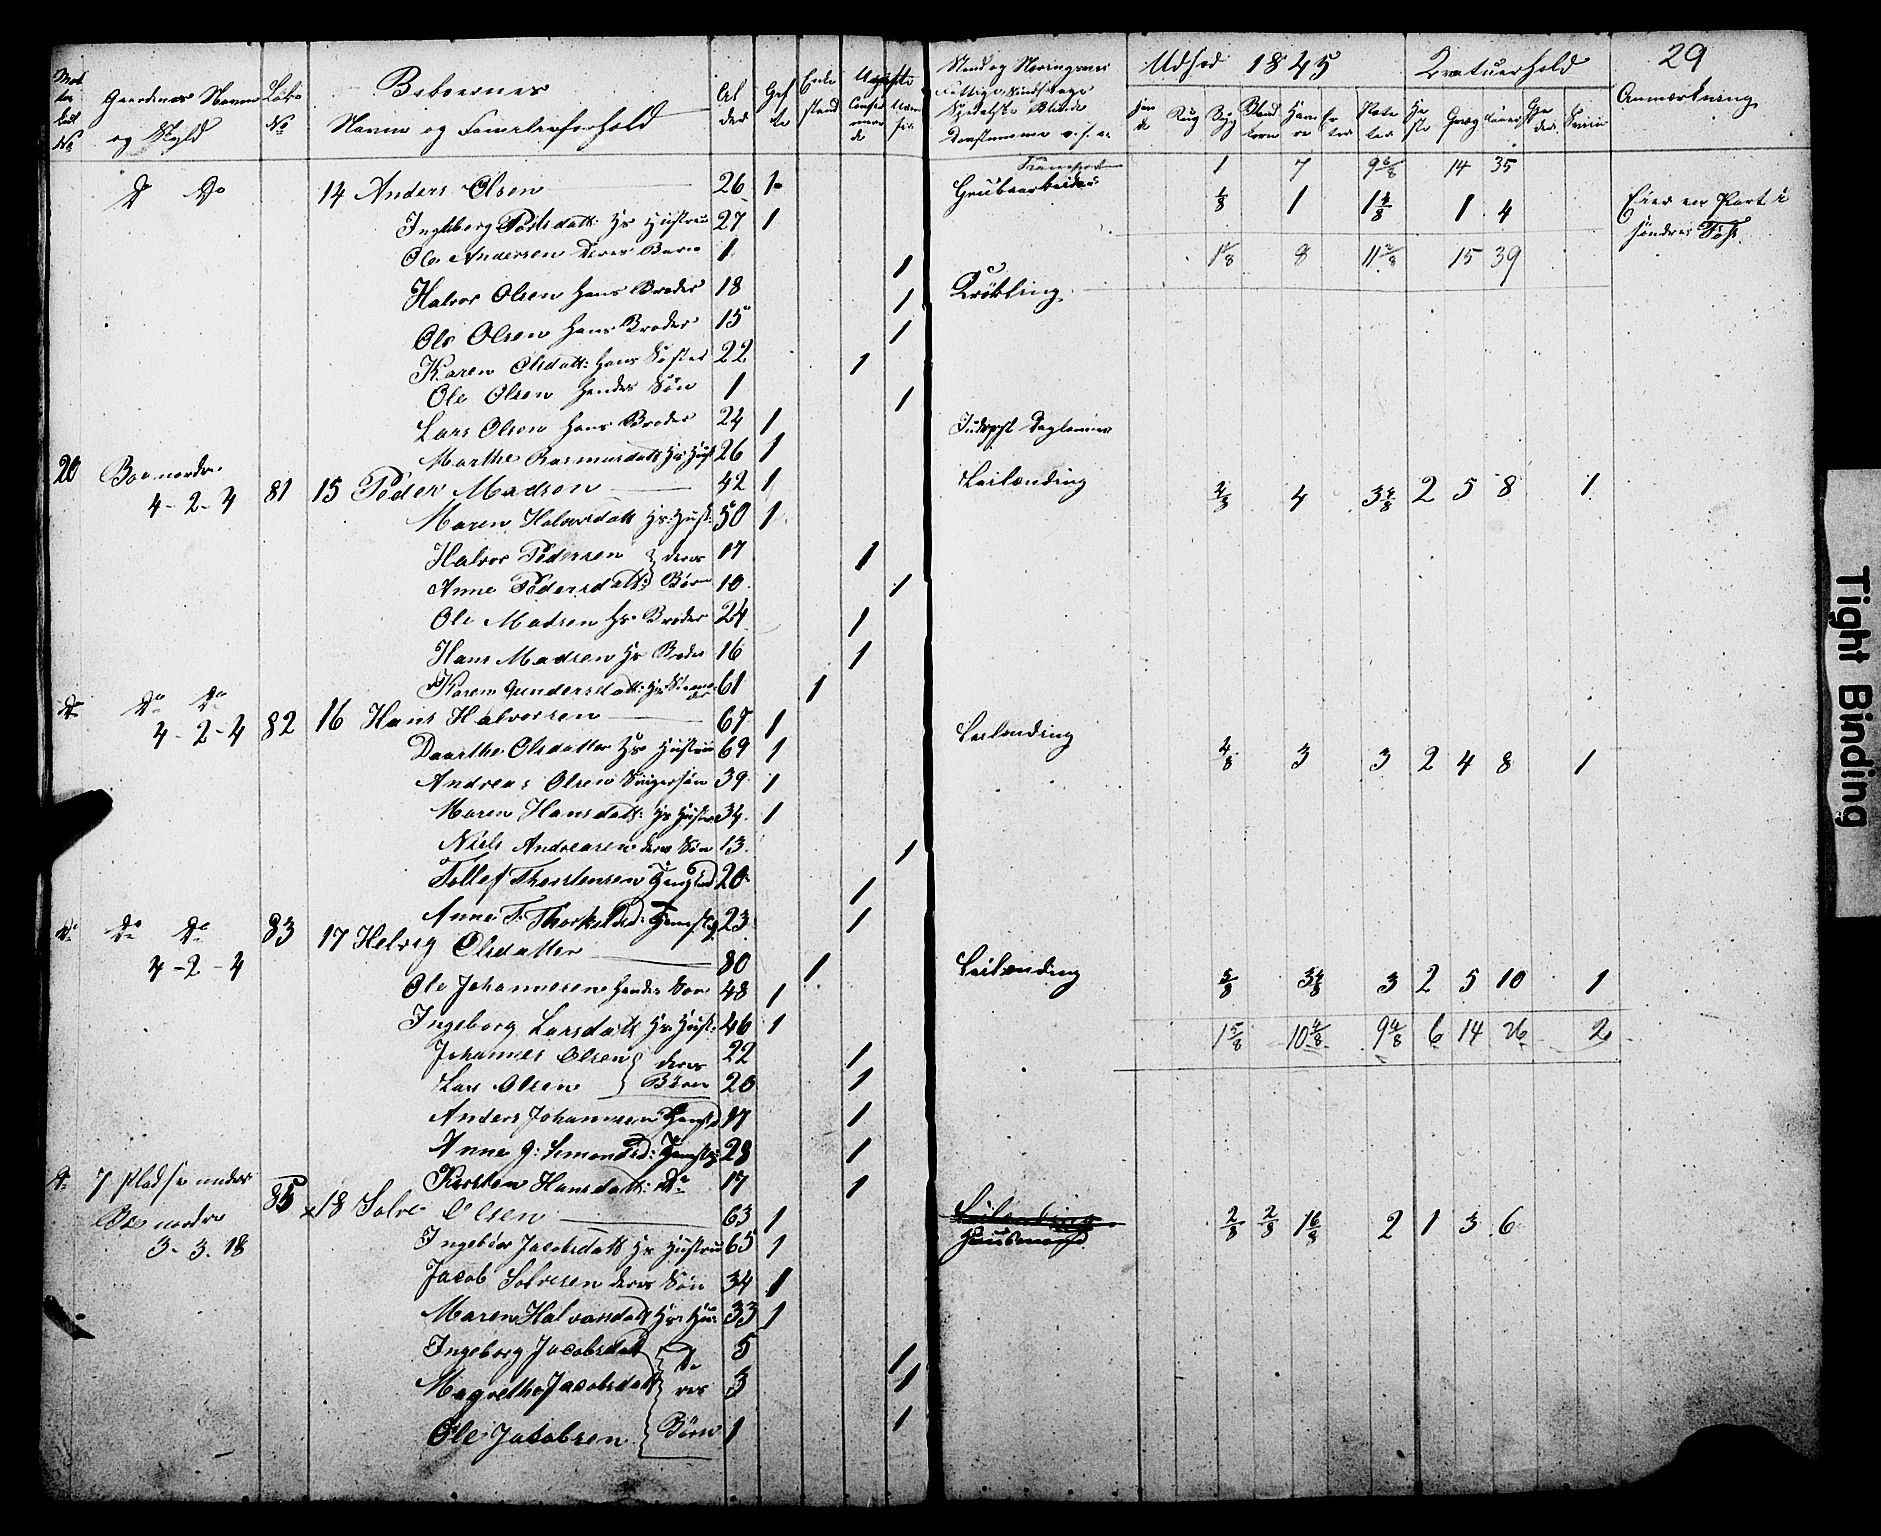 29
Gaardenes Navne og Skyld
Løbe No
Beboernes Navne og Familieforhold
Al der
Gif te
Enke stand
Ugifte
Udsæd 1845
Creaturhold
Anmærkning
Rug Byg Bland korn Hav re Er ter Pote ter He ste
Transport 1 7 9 6/8 14 35
Do Do 14 Anders Olsen 26 1 Grubearbeider 1/8 1 1 4/8 1 4 Eier en Part i
Ingeborg Hs Hustrue 27 1 søndre
Ole Andersen Deres Barn 1 1 1 1/8 8 11 2/8 15 39
Halvor Olsen Hans Broder 18 1 Krøbling
Ole Olsen Hans Broder 15 1
Karen Olsdatt: Hans Søster 22 1
Ole Olsen Hendes Søn 1 1
Lars Olsen Hans Broder 24 1 Inderst Daglønner
Marthe Rasmusdatt Hs Hust 26 1
20 Boe nordre 4-2-4 81 15 Peder Madsen 42 1 Leilænding 4 3 4/8 2 5 8 1
Maren Halvorsdatt Hs: Hust: 50 1
Halvor Pedersen } deres 17 1
Anne Pedersdatt: } Børn 10 1
Ole Madsen Hs Broder 24 1
Hans Madsen Hs Broder 16 1
Karen Gundersdatt: Hs 61 1
Do Do Do 4-2-4 82 16 Hans Halvorsen 67 1 Leilænding 4/8 3 3 2 4 8 1
Daarthe Olsdatter Hs Hustrue 69 1
Andreas Olsen Svigersøn 39 1
Maren Hansdatt: Hs Hustrue 34 1
Niels Andreasen deres Søn 13 1
Tollef Thorstensen 20 1
Anne T: Thorkelsd: Tjenestep 23 1
Do Do Do 4-2-4 83 17 Helvig Olsdatter 80 1 Leilænding 5/8 3 4/8 3 2 5 10 1
Ole Johannesen Hendes Søn 48 1
Ingeborg Larsdatt Hs Hust: 46 1 1 5/8 10 4/8 9 4/8 6 14 26 2
Johannes Olsen } deres 22 1
Lars Olsen } Børn 20 1
Anders Johannesen Tjenestd 17 1
Anne G: Simonsd: Tjenestp 28 1
Kirsten Hansdatt: Do 17 1
Do 7 Pladse under Boe nordre 3-3.18 85 x18 Solve Olsen 63 1 Leilænding Huusmand 2/8 2/8 1 6/8 2 1 3 6
Ingebor Jacobsdatt Hs Hustrue 65 1
Jacob Solvesen deres Søn 34 1
Maren Halvorsdatt Hs: Hu: 33 1
Ingeborg Jacobsdatt } de 5 1
Magrethe Jacobsdatt } res 3 1
Ole Jacobsen } Børn 1 1
Tight Binding